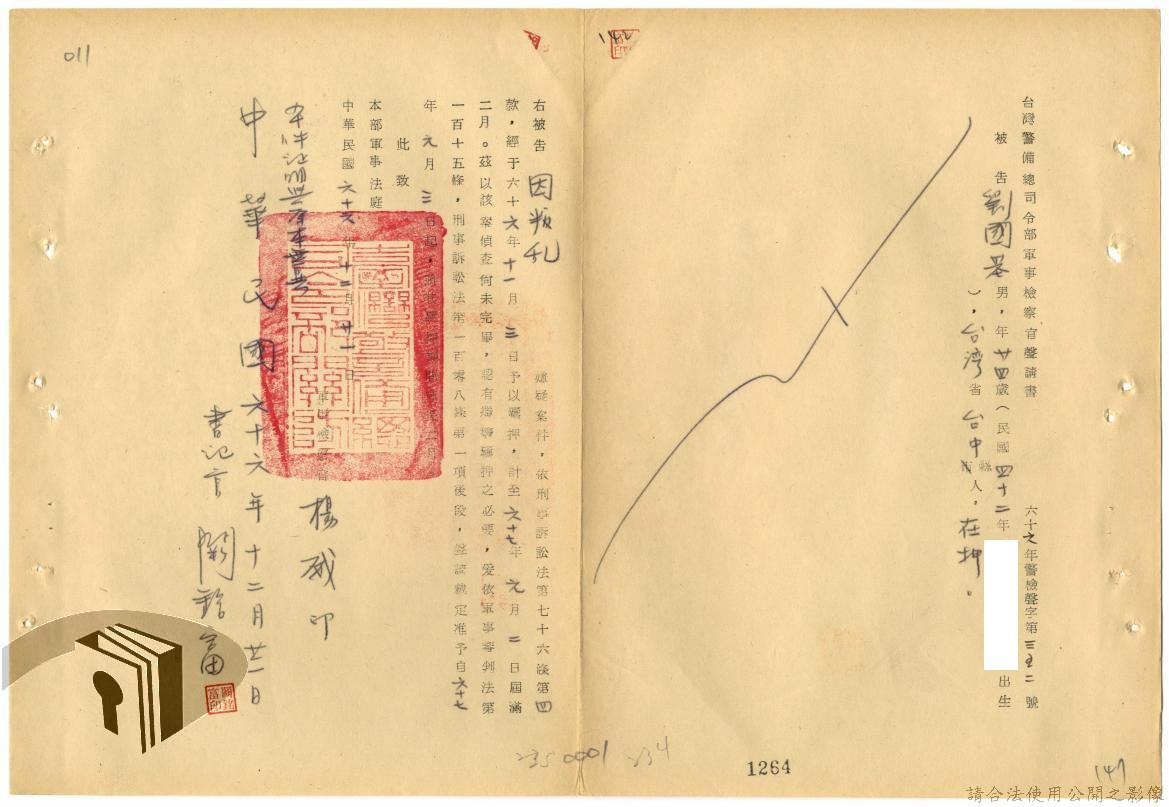 台灣警備總司令部軍事檢察官聲請書
六十六年警檢聲字第三五二號
被告劉國基男,年廿四歲(民國四十二年 出生
),台湾省台中縣市人,在押。
右被告因叛乱嫌疑案件,依刑事訴訟法第七十六條第四
款,經于六十六年十一月三日予以羈押,計至六十七年元月二日屆滿
二月。茲以該案偵查尚未完畢,認有繼續羈押之必要,爰依軍事審判法第
一百十五條,刑事訴訟法第一百零八條第一項後段,聲請裁定准予自六十七
年元月三日起,
此致
本部軍事法庭
中華民國六十六年十二月廿一日
軍事檢察官 楊威印
本件證明與原本無異
中華民國六十六年十二月廿一日
書記官 關 富
011
142
235 0001 234
1264
147
請合法使用公開之影像